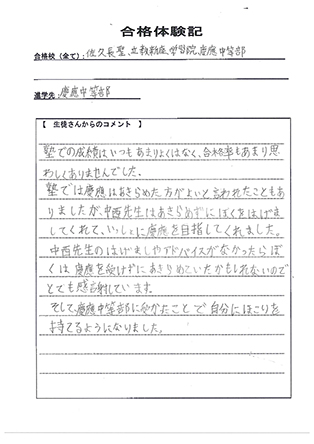 合格体験記
合格校(全て): 佐久長聖、立教新座、学習院、慶應中等部
進学先: 慶應中等部
【 生徒さんからのコメント 】
塾での成績はいつもあまりよくはなく、合格率もあまり思
わしくありませんでした。
塾では慶應はあきらめた方がよいと言われたこともあ
りましたが、中西先生はあきらめずにぼくをはげま
してくれて、いっしょに慶應を目指してくれました。
中西先生のはげましやアドバイスがなかったらぼ
くは慶應を受けずにあきらめていたかもしれないので
とても感謝しています。
そして、慶應中等部に受かたことで自分にほこりを
持てるようになりました。